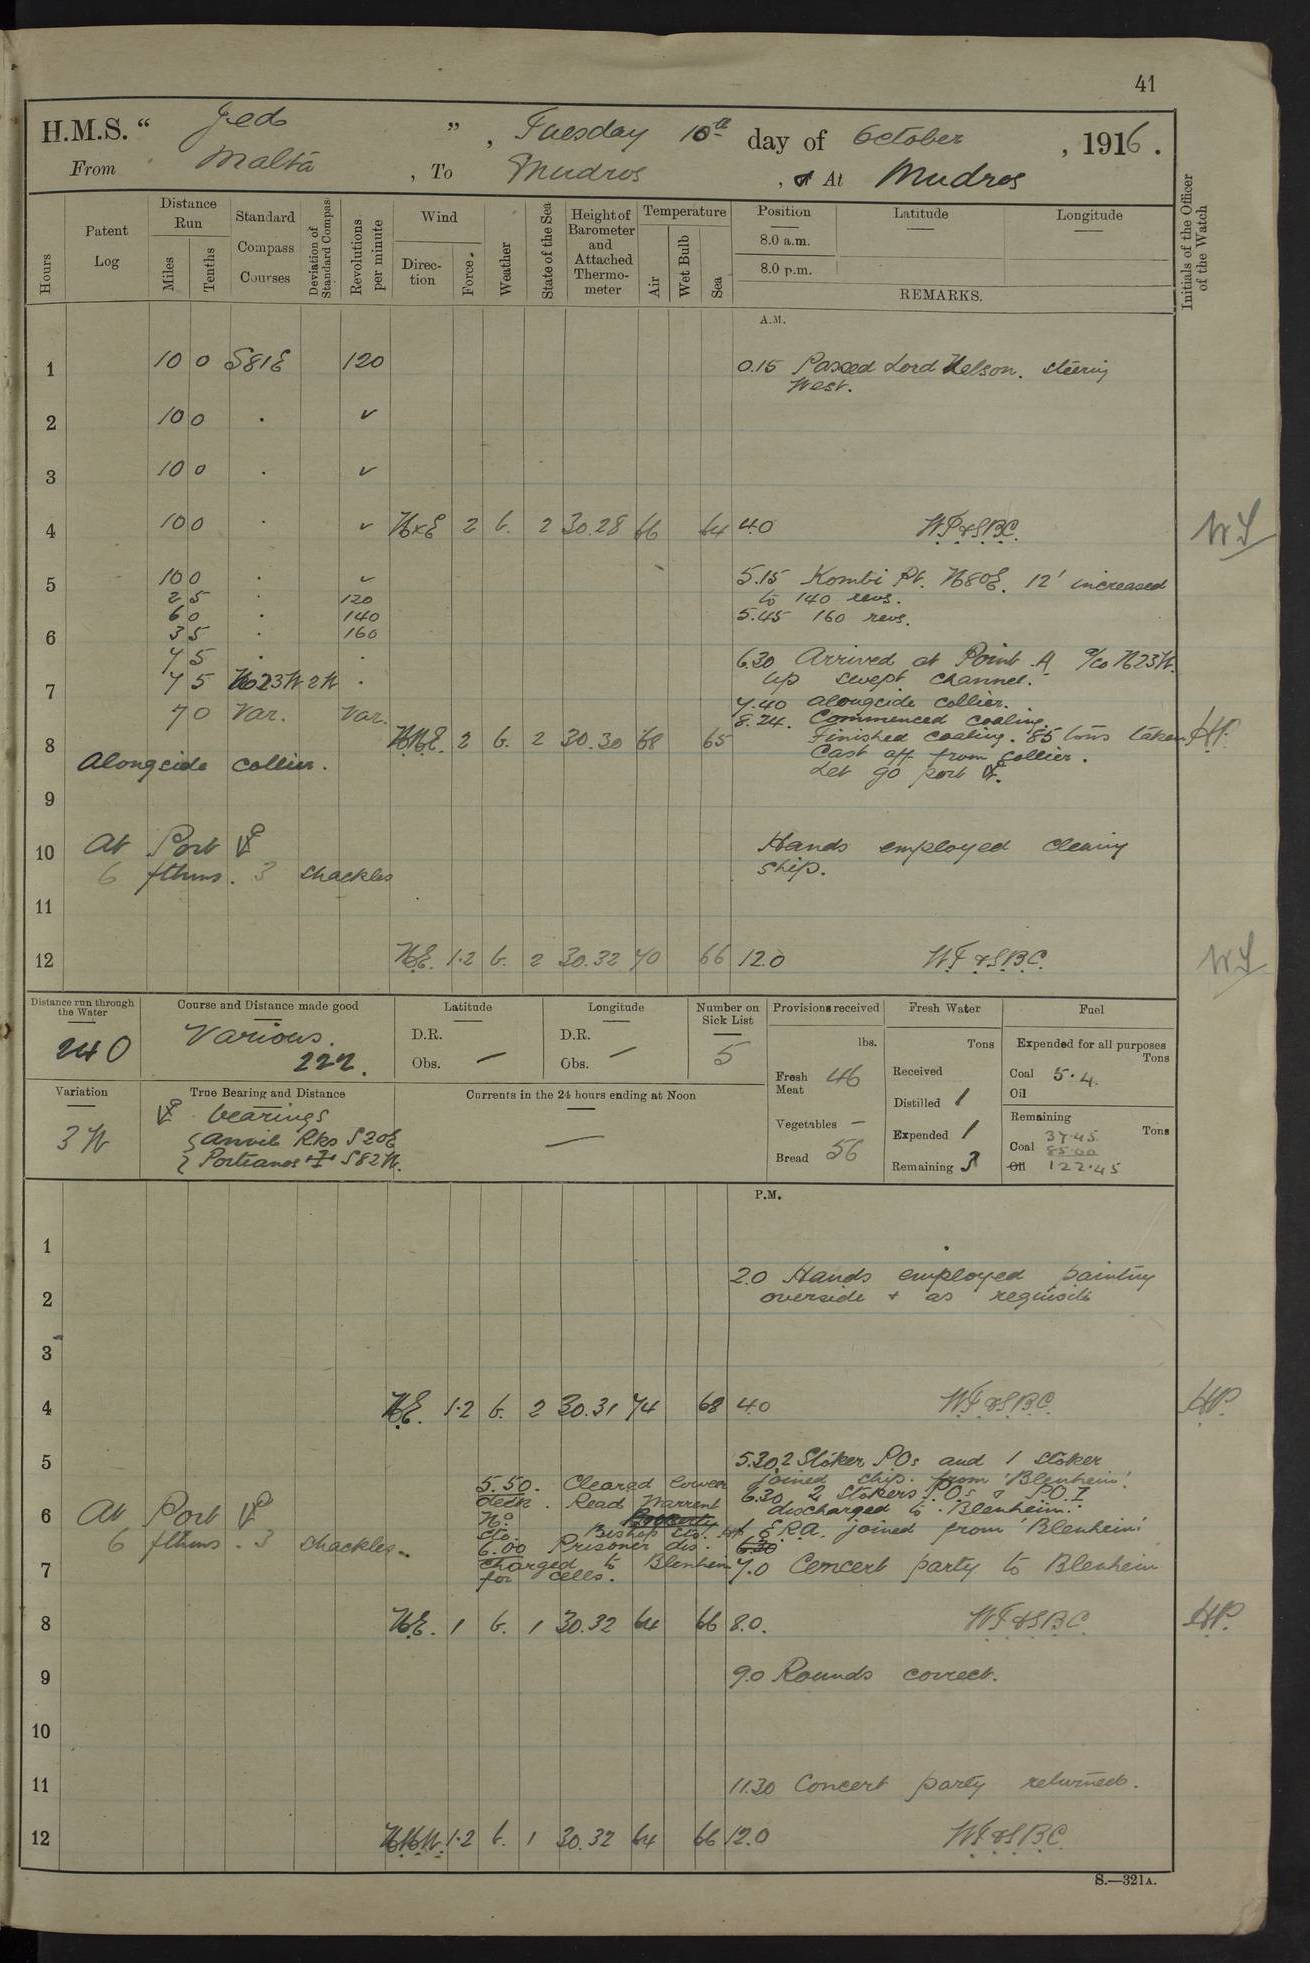 41
H.M.S. " Jed ", Tuesday 10th day of October, 1916.
From Malta, To Mudros, or At Mudros
Hours
Patent Log
Distance Run
Miles
Tenths
Standard Compass Courses
Deviation of Standard Compass
Revolutions per minute
Wind
Direction
Force.
Weather
State of the Sea
Height of Barometer and Attached Thermometer
Temperature
Air
Wet Bulb
Sea
Position
8.0 a.m.
8.0 p.m.
Latitude
Longitude
REMARKS.
Initials of the Officer of the Watch
A.M.
1 10 0 S81E 120 0.15 Passed Lord Nelson. steering
West.
2 10 0 . ✓
3 10 0 . ✓
4 10 0 . ✓ NxE 2 b. 2 30.28 66 64 4.0 W.T.&S.B.C.
5 10 0 . ✓ 5.15 Kombi Pt. N80E. 12' increased
2 5 . 120 to 140 revs.
6 0 . 140 5.45 160 revs.
6 3 5 . 160
7 5 . . 6.30 Arrived at Point A a/co N23W.
7 7 5 N23W 2W . up swept channel.
7.40 alongside collier.
7 0 Var. Var. 8.24. Commenced coaling.
8 NNE. 2 b. 2 30.30 68 65 Finished coaling. 85 tons taken H.P.
Alongside collier. Cast off from collier.
Let go port ⚓.
9
10 At Port ⚓ Hands employed clearing
6 fthms. 3 shackles ship.
11
12 NE. 1.2 b. 2 30.32 70 66 12.0 W.T.&S.B.C.
Distance run through the Water
240
Course and Distance made good
Various.
222.
Latitude
D.R.
Obs. —
Longitude
D.R.
Obs. —
Number on Sick List
5
Provisions received
lbs.
Fresh Meat 46
Vegetables —
Bread 56
Fresh Water
Tons
Received
Distilled 1
Expended 1
Remaining 3
Fuel
Expended for all purposes
Tons
Coal 5.4.
Oil
Remaining
Tons
37.45
Coal 85.00
Oil 122.45
Variation
3 W
True Bearing and Distance
⚓ bearings
Anvil Rks S20E
Portianos S82W.
Currents in the 24 hours ending at Noon
—
P.M.
1
2.0 Hands employed painting
2 overside + as requisite
3
4 NE. 1.2 b. 2 30.31 74 68 4.0 W.T.&S.B.C. H.P.
5 5.30 2 Stoker POs and 1 Stoker
joined ship. from 'Blenheim'.
5.50. Cleared lower
deck. Read Warrent
6.30 2 Stokers P.Os & P.O.I
discharged to Blenheim.
6 At Port ⚓
6 fthms. 3 shackles
1 E.R.A. joined from 'Blenheim'
6.00 Prisoner dis-
charged to Blenheim
for cells.
7 7.0 Concert party to Blenheim
8 NE. 1 b. 1 30.32 64 66 8.0. W.T.&S.B.C. H.P.
9 9.0 Rounds correct.
10
11 11.30 Concert party returned.
12 NNW. 1.2 b. 1 30.32 64 66 12.0 W.T.&S.B.C.
S.—321A.